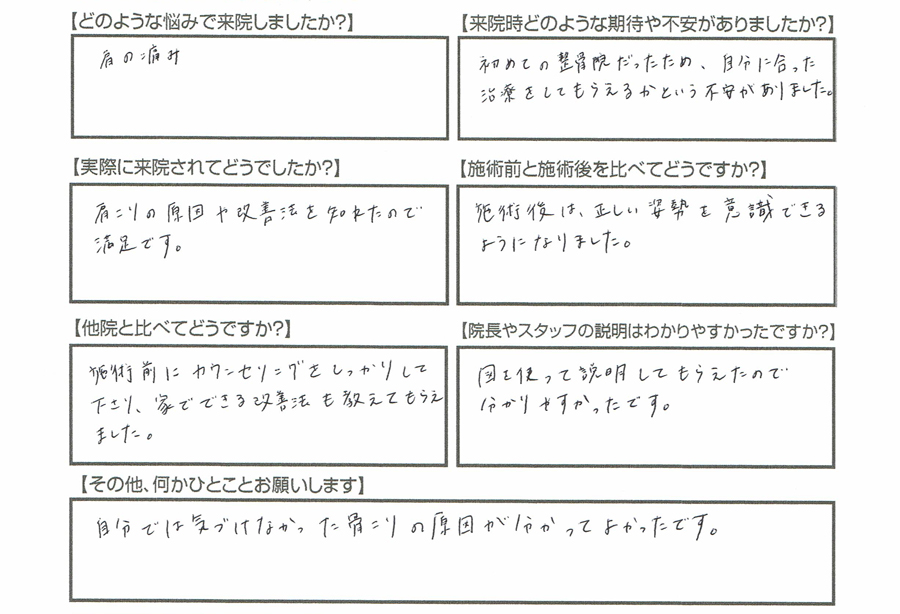 【どのような悩みで来院しましたか?】
肩の痛み
【来院時どのような期待や不安がありましたか?】
初めての整骨院だったため、自分に合った
治療をしてもらえるかという不安がありました。
【実際に来院されてどうでしたか?】
肩こりの原因や改善法を知れたので
満足です。
【施術前と施術後を比べてどうですか?】
施術後は、正しい姿勢を意識できる
ようになりました。
【他院と比べてどうですか?】
施術前にカウンセリングをしっかりして
下さり、家でできる改善法も教えてもらえ
ました。
【院長やスタッフの説明はわかりやすかったですか?】
図を使って説明してもらえたので
分かりやすかったです。
【その他、何かひとことお願いします】
自分では気づけなかった骨こりの原因が分かってよかったです。